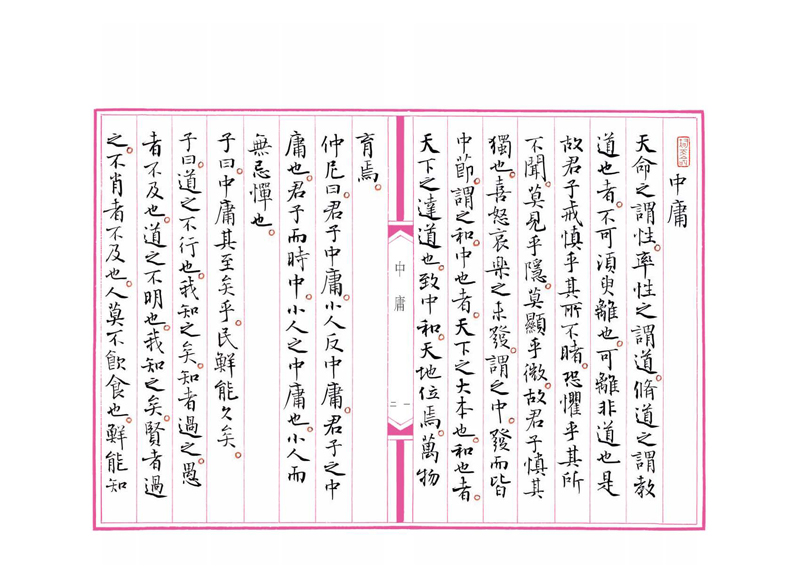 中庸
天命之謂性。率性之謂道。脩道之謂教
道也者。不可須臾離也。可離非道也是
故君子戒慎乎其所不睹。恐懼乎其所
不聞。莫見乎隱。莫顯乎微。故君子慎其
獨也。喜怒哀樂之未發。謂之中。發而皆
中節。謂之和中也者。天下之大本也。和也者。
天下之達道也。致中和。天地位焉。萬物
育焉。
中庸
一
二
仲尼曰。君子中庸。小人反中庸。君子之中
庸也。君子而時中。小人之中庸也。小人而
無忌憚也。
子曰。中庸其至矣乎。民鮮能久矣。
子曰。道之不行也。我知之矣。知者過之。愚
者不及也。道之不明也。我知之矣。賢者過
之。不肖者不及也。人莫不飲食也。鮮能知